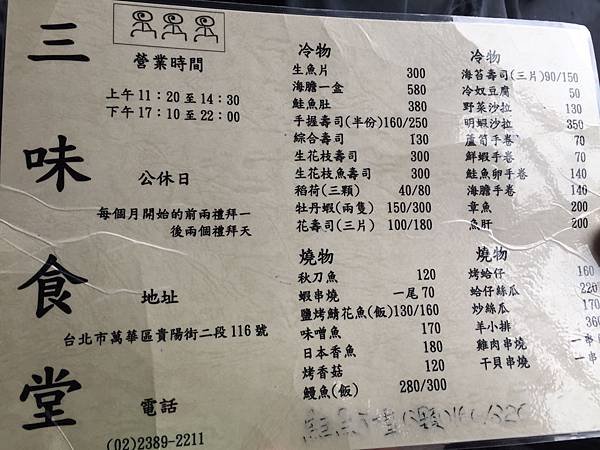 三味食堂
營業時間
上午11：20至14：30
下午17：10至22：00
公休日
每個月開始的前兩禮拜一
後兩個禮拜天
地址
台北市萬華區貴陽街二段116號
電話
(02)2389-2211
冷物
生魚片 300
海膽一盒 580
鮭魚肚 380
手握壽司(半份)160/250
綜合壽司 130
生花枝壽司 300
生花枝魚壽司 300
稻荷(三顆) 40/80
牡丹蝦(兩隻) 150/300
花壽司(三片) 100/180
燒物
秋刀魚 120
蝦串燒 一尾70
鹽烤鯖花魚(飯)130/160
味噌魚 170
日本香魚 180
烤香菇 120
鰻魚(飯) 280/300
冷物
海苔壽司(三片)90/150
冷奴豆腐 50
野菜沙拉 130
明蝦沙拉 350
蘆筍手卷 70
鮮蝦手卷 70
鮭魚卵手卷 140
海膽手卷 140
章魚 200
魚肝 200
燒物
烤蛤仔 160
蛤仔絲瓜 220
炒絲瓜 170
羊小排 360
雞肉串燒 一串
干貝串燒 一串